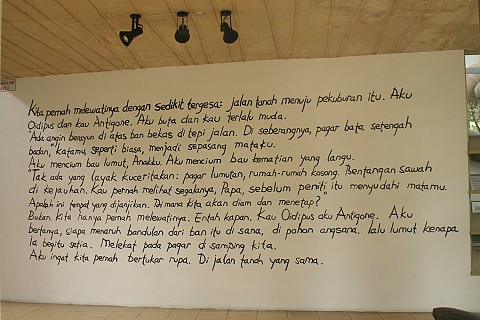 Kita pernah melewatinya dengan sedikit tergesa: jalan tanah menuju pekuburan itu. Aku
Oidipus dan kau Antigone. Aku buta dan kau terlalu muda.
Ada angin berayun di atas ban bekas di tepi jalan. Di seberangnya, pagar bata setengah
badan," katamu, seperti biasa, menjadi sepasang mataku.
Aku mencium bau lumut, Anakku. Aku mencium bau kematian yang langu.
"Tak ada yang layak kuceritakan: pagar lumutan, rumah-rumah kosong. Bentangan sawah
di kejauhan. Kau pernah melihat segalanya, Papa, sebelum peniti itu menyudahi matamu.
Apakah ini tempat yang dijanjikan. Di mana kita akan diam dan menetap?
Bukan. Kita hanya pernah melewatinya. Entah kapan. Kau Oidipus aku Antigone. Aku
bertanya, siapa menaruh bandulan dari ban itu di sana, di pohon angsana. lalu lumut kenapa
ia begitu setia. Melekat pada pagar di samping kita.
Aku ingat kita pernah bertukar rupa. Di jalan tanah yang sama.